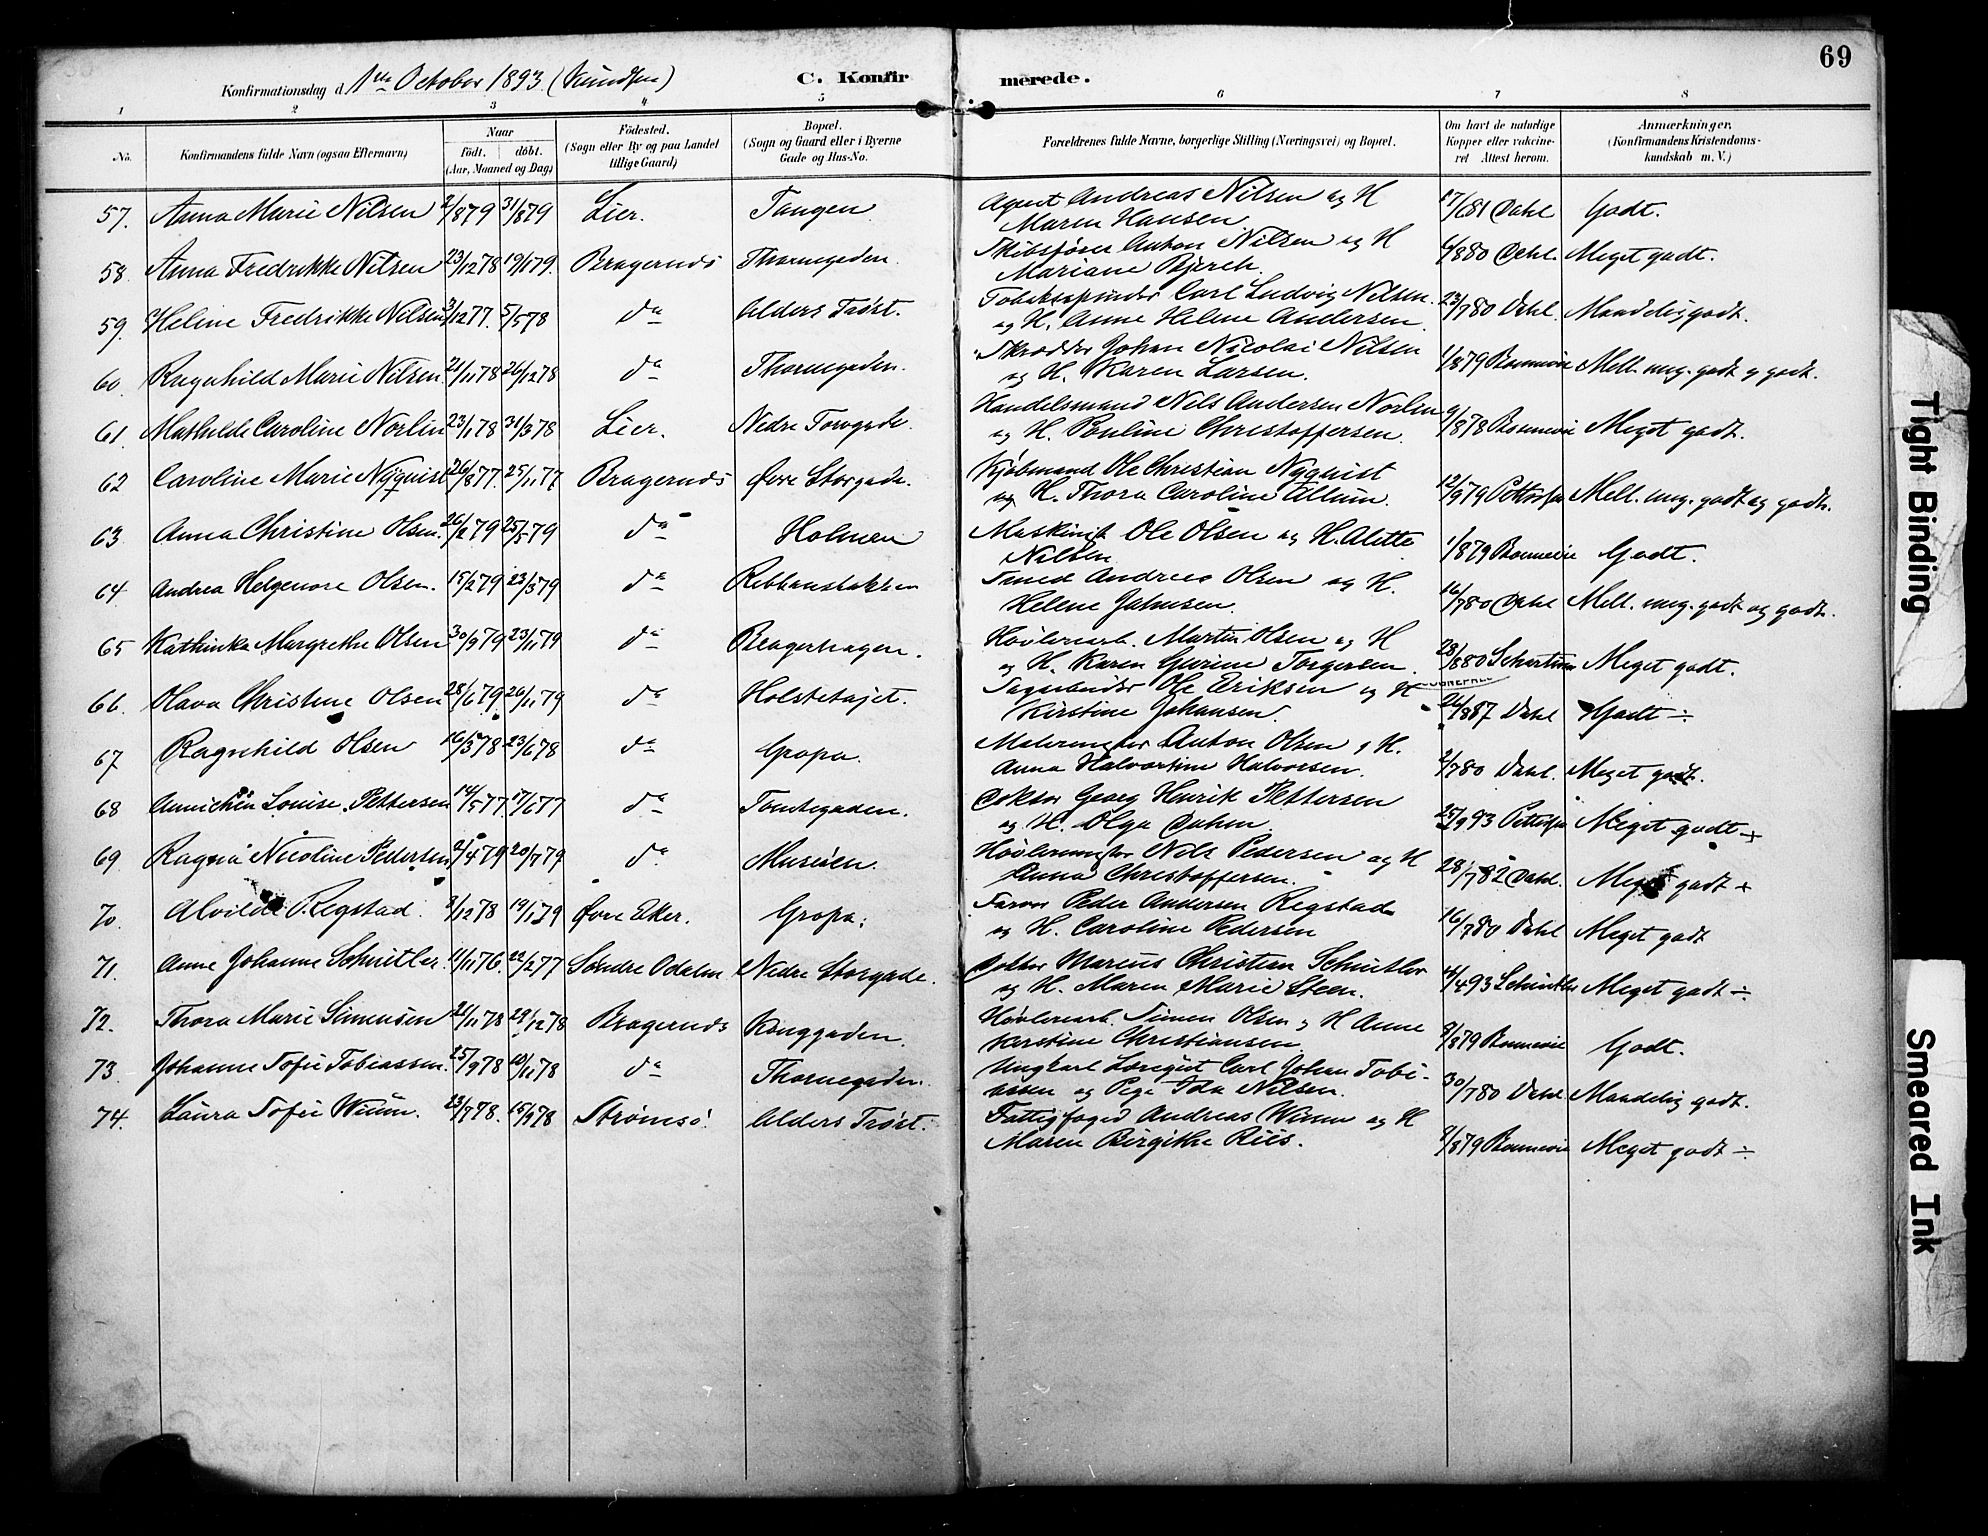 69
Konfirmationsdag d. 1ste October 1893 (Knudsen) C. Konfirmerede.
1 2 3 4 5 6 7 8
No. Konfirmandens fulde Navn (ogsaa Efternavn) Naar født. døbt. (Aar, Maaned og Dag) Födested. (Sogn eller By og paa Landet tillige Gaard) Bopæl. (Sogn og Gaard eller i Byerne Gade og Hus-No. Forældrenes fulde Navne, borgerlige Stilling (Næringsvei) og Bopæl. Om havt de naturlige Kopper eller vakcineret. Attest herom. Anmærkninger. (Konfirmandens Kristendomskundskab m. V.)
57. Anna Marie Nilsen 2/879 31/879 Lier. Tangen Agent Andreas Nilsen og H Maren Hansen 17/681 Dahl Godt.
58. Anna Fredrikke Nilsen 23/1278 19/179. Bragernds Thornegaden. Skibsfører Anton Nilsen og H Mariane Bjerch. 4/880 Dahl. Meget godt.
59. Heline Fredrikke Nilsen 3/1277. 5/578 da Alders Trøst. Tobaksspinder Carl Ludvig Nilsen og H. Anne Helene Andersen 23/780 Dahl. Maadelig godt.
60. Ragnhild Marie Nilsen 21/1178 26/1278 da Thornegaden. Skrædder Johan Nicolai Nilsen og H. Karen Larsen. 1/879 Bonnevie Mell. mg. godt og godt.
61. Mathilde Caroline Norlin 23/178 31/378 Lier. Nedre Torvgade. Handelsmand Nels Andersen Norlin og H. Pauline Christoffersen. 9/878 Bonnevie Meget godt.
62 Caroline Marie Nyquist 26/877. 25/1177 Bragernds Øvre Storgade. Kjøbmand Ole Christian Nyquist og H. Thora Caroline Allum. 12/979 Pettersen Mell. mg. godt og godt.
63. Anna Christine Olsen. 26/279 25/579 da Holmen Maskinist Ole Olsen og H. Alette Nilsen 1/879 Bonnevie Godt.
64. Andrea Helgenore Olsen. 15/279 23/379 da Rebbansbakken Smed Andreas Olsen og H. Helene Jahnsen. 16/780 Dahl Mell. mg. godt og godt.
65 Kathinka Margrethe Olsen 30/979 23/1179 da Bragerhagen. Høvleriarb. Martin Olsen og H og H. Karen Gurine Torgersen. 28/880 Meget godt.
66. Olava Christine Olsen 28/679 26/1179 da Holstetajet. Sagarbeider Ole Eriksen og H Kirstine Johansen. 24/887 Dahl Godt ÷
67 Ragnhild Olsen 16/378 23/678 da Gropa. Malermester Anton Olsen & H. Anna Halvortine Halvorsen. 2/780 Dahl. Meget godt.
68 Annichen Louise Pettersen 14/577. 17/677 da Tomtegaden. Doktor Georg Henrik Pettersen og H. Olga Dahm 25/993 Pettersen Meget godt +
69 Ragna Nicoline Pedersen 2/479 20/779 da. Musiöen. Høvlerimester Nils Pedersen og H Anna Christoffersen. 28/782 Dahl. Meget godt +
70. Alvilde Regstad. 3/1278 19/179 Øvre Eker. Gropa. Peder Andersen Regstad og H. Caroline Pedersen 16/780 Dahl Meget godt
71. Anne Johanne Schnitler. 11/1176. 22/277 Söndre Odalen Nedre Storgade. Doktor Marcus Christian Schnitler og H. Maren Marie Steen. 493 Schnitler Meget godt ÷
72. Thora Marie Simensen 21/1178 29/1278 Bragernds Kongsgaden. Høvleriarb. Simen Olsen & H Anne Kirstine Christiansen. 8/879 Bonnevie Godt.
73. Johanne Sofie Tobiassen. 25/978 10/1178 da Thornegaden. Ungkarl Løregut Carl Johan Tobiassen og Pige Ida Nilsen. 30/780 Dahl Maadelig godt.
74. Laura Sofie Wium. 23/778. 15/978 Strømsö. Alders Trøst. Fattigfoged Andreas Wium og H Maren Birgitte Riis. 9/879 Bonnevie Meget godt ÷
Tight Binding
Smeared Ink